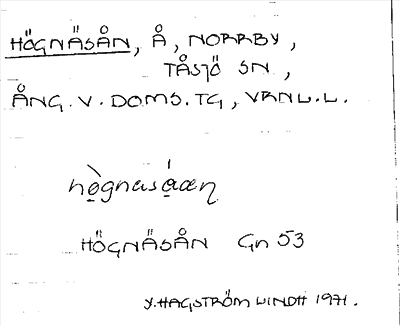 HÖGNÄSÅN, Å, NORRBY,
TÅSJÖ SN,
ÅNG. V. DOMS. TG, VRNL. L.
HÖGNÄSÅN Gn 53
Y. HAGSTRÖM LINDH 1971.